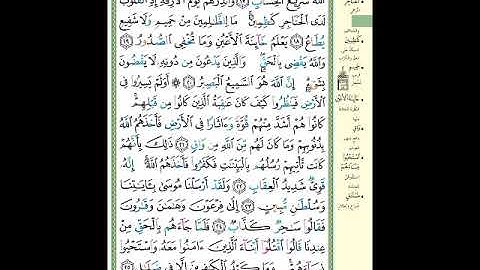 ٱللَّهَ سَرِيعُ ٱلْحِسَابِ ١٧ وَأَنذِرْهُمْ يَوْمَ ٱلْءَازِفَةِ إِذِ ٱلْقُلُوبُ
لَدَى ٱلْحَنَاجِرِ كَٰظِمِينَ مَا لِلظَّٰلِمِينَ مِنْ حَمِيمٍ وَلَا شَفِيعٍ
يُطَاعُ ١٨ يَعْلَمُ خَآئِنَةَ ٱلْأَعْيُنِ وَمَا تُخْفِى ٱلصُّدُورُ ١٩
وَٱللَّهُ يَقْضِى بِٱلْحَقِّ وَٱلَّذِينَ يَدْعُونَ مِن دُونِهِۦ لَا يَقْضُونَ
بِشَىْءٍ إِنَّ ٱللَّهَ هُوَ ٱلسَّمِيعُ ٱلْبَصِيرُ ٢٠ أَوَلَمْ يَسِيرُوا۟ فِى
ٱلْأَرْضِ فَيَنظُرُوا۟ كَيْفَ كَانَ عَٰقِبَةُ ٱلَّذِينَ كَانُوا۟ مِن قَبْلِهِمْ
كَانُوا۟ هُمْ أَشَدَّ مِنْهُمْ قُوَّةً وَءَاثَارًا فِى ٱلْأَرْضِ فَأَخَذَهُمُ ٱللَّهُ
بِذُنُوبِهِمْ وَمَا كَانَ لَهُم مِّنَ ٱللَّهِ مِن وَاقٍ ٢١ ذَٰلِكَ بِأَنَّهُمْ
كَانَت تَّأْتِيهِمْ رُسُلُهُم بِٱلْبَيِّنَٰتِ فَكَفَرُوا۟ فَأَخَذَهُمُ ٱللَّهُ إِنَّهُۥ
قَوِىٌّ شَدِيدُ ٱلْعِقَابِ ٢٢ وَلَقَدْ أَرْسَلْنَا مُوسَىٰ بِـَٔايَٰتِنَا
وَسُلْطَٰنٍ مُّبِينٍ ٢٣ إِلَىٰ فِرْعَوْنَ وَهَٰمَٰنَ وَقَٰرُونَ
فَقَالُوا۟ سَٰحِرٌ كَذَّابٌ ٢٤ فَلَمَّا جَآءَهُم بِٱلْحَقِّ مِنْ
عِندِنَا قَالُوا۟ ٱقْتُلُوٓا۟ أَبْنَآءَ ٱلَّذِينَ ءَامَنُوا۟ مَعَهُۥ وَٱسْتَحْيُوا۟
نِسَآءَهُمْ وَمَا كَيْدُ ٱلْكَٰفِرِينَ إِلَّا فِى ضَلَٰلٍ ٢٥